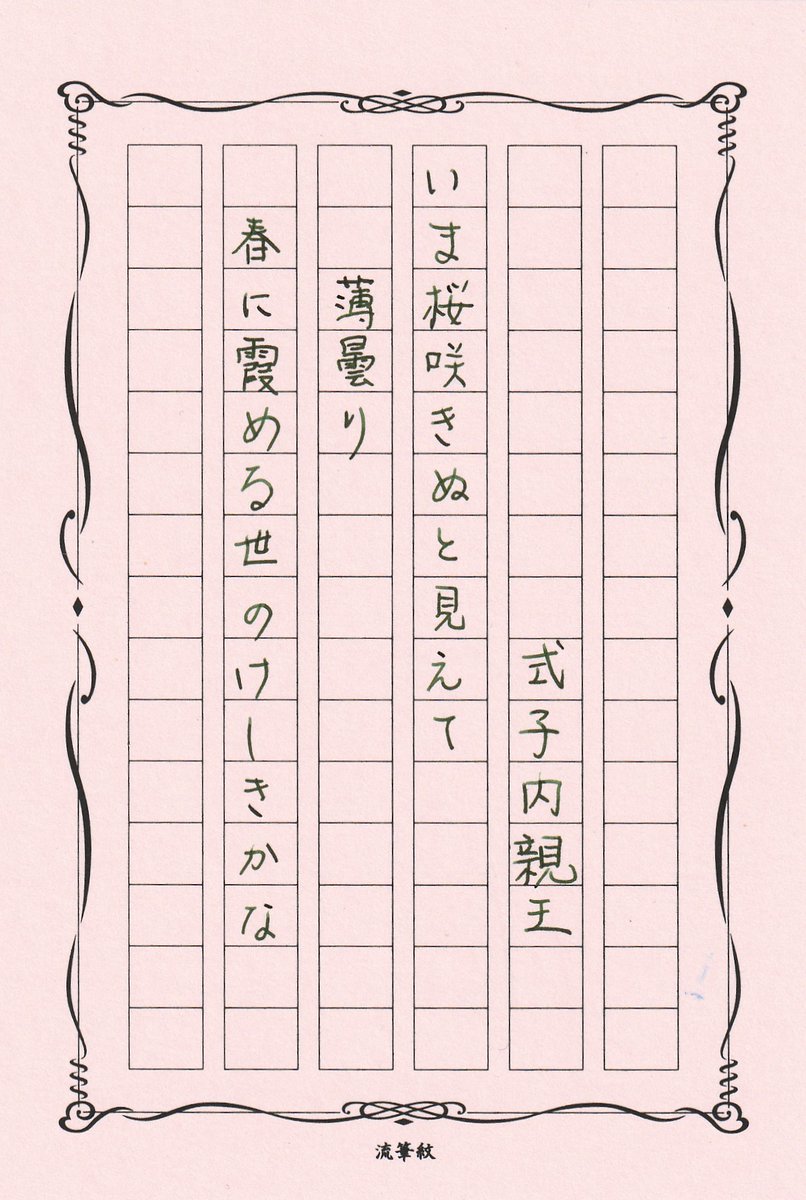 式子内親王
いま桜咲きぬと見えて
薄曇り
春に霞める世のけしきかな
流筆紋